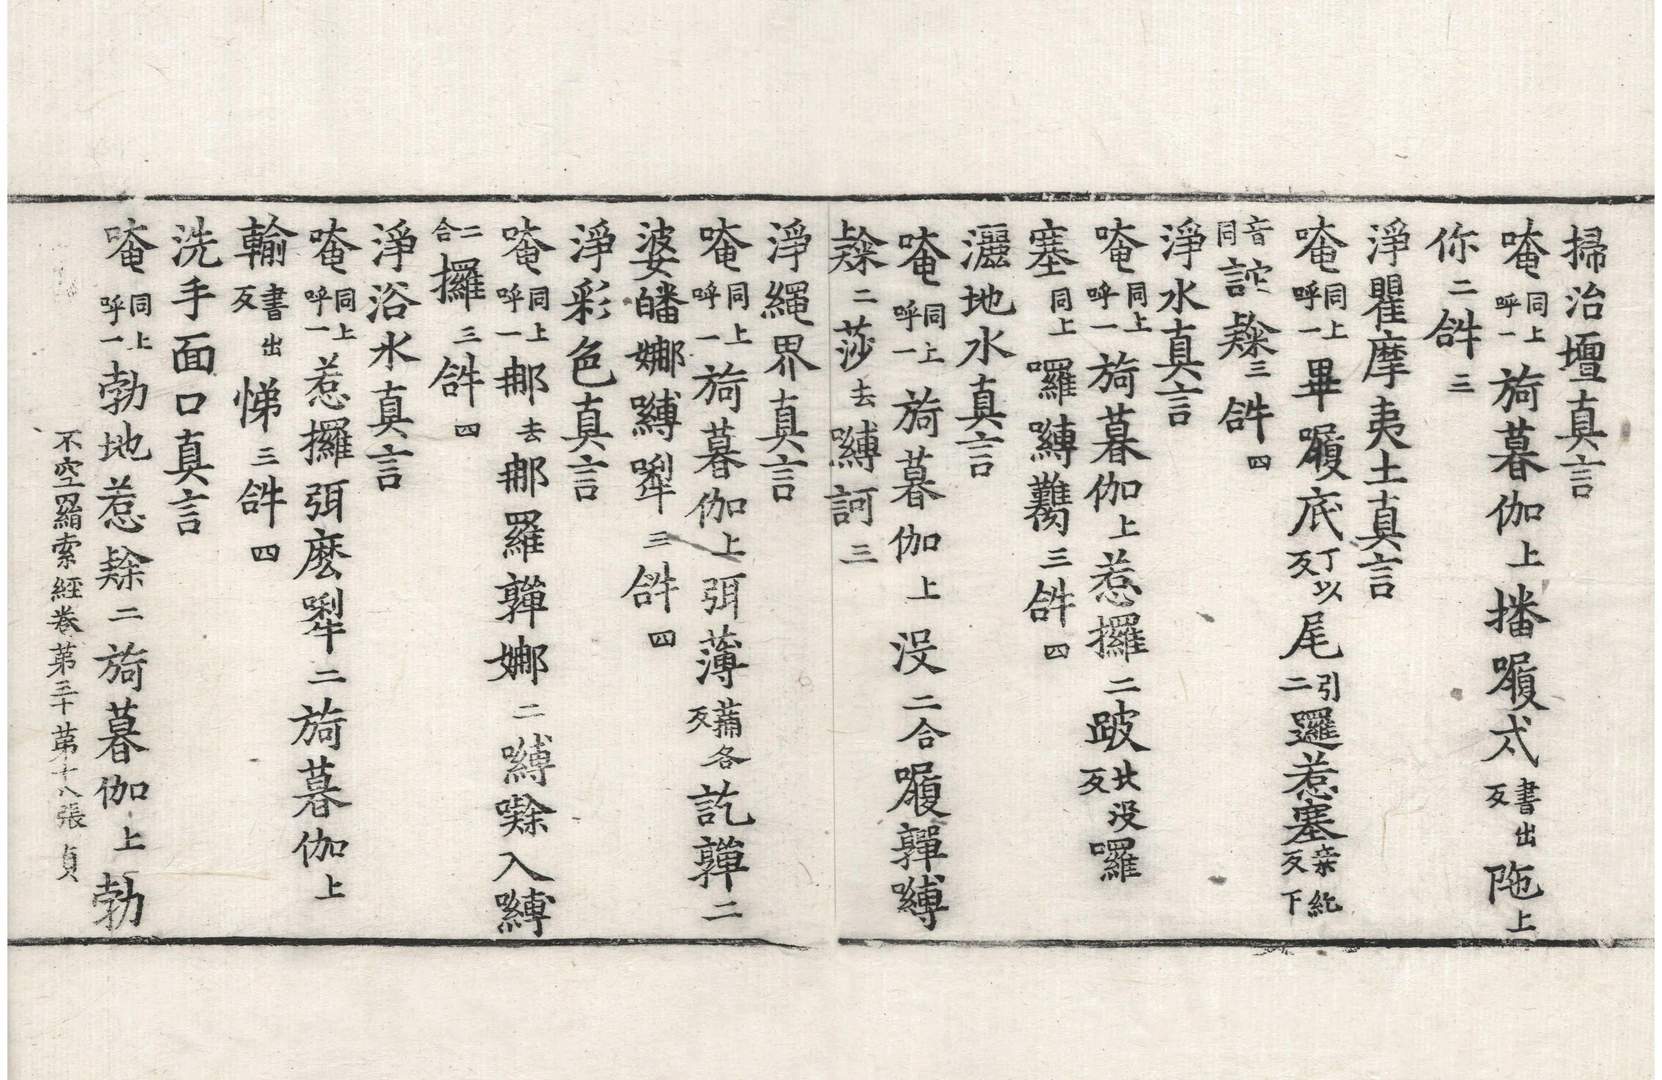 掃治壇真言
唵同上呼一旖暮伽上播𡂰忒書出反陁上
你二𤙖三
淨瞿摩夷土真言
唵同上呼一畢𡂰底丁以反尾二引邏惹塞桒紇反下
同音詑𨅖三𤙖四
淨水真言
唵同上呼一旖暮伽上惹攞二跛北没反囉
塞同上囉嚩㘓三𤙖四
灑地水真言
唵同上呼一旖暮伽上没二合𡂰亸嚩
𨅖二莎去嚩訶三
淨繩界真言
唵同上呼一旖暮伽上弭薄蒱各反訖亸二
婆皤娜嚩㗚三𤙖四
淨彩色真言
唵同上呼一郍去郍羅亸娜二嚩㗭入嚩
二合攞三𤙖四
淨浴水真言
唵同上呼一惹攞弭麽㗚二旖暮伽上
輸書出反悌三𤙖四
洗手面口真言
唵同上呼一勃地惹𨅖二旖暮伽上勃
不空羂索經卷第三十第十八張 貞